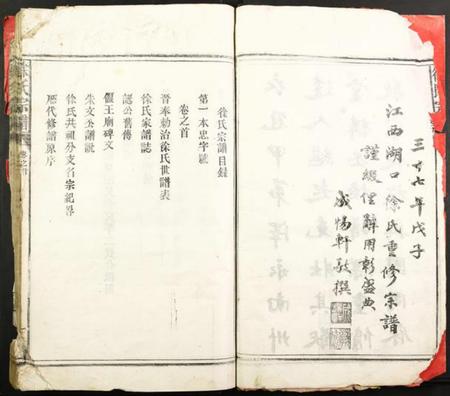 三十七年戊子
江西湖口徐氏重修宗譜
謹綴俚辭用彰盛典
咸惕軒敬撰
徐氏宗譜目錄
第一本忠字號
卷之首
晉奉勅治徐氏世譜表
徐氏家譜誌
認公舊傳
偃王廟碑文
朱文公譜說
徐氏共祖分支名宗紀畧
歷代修譜原序